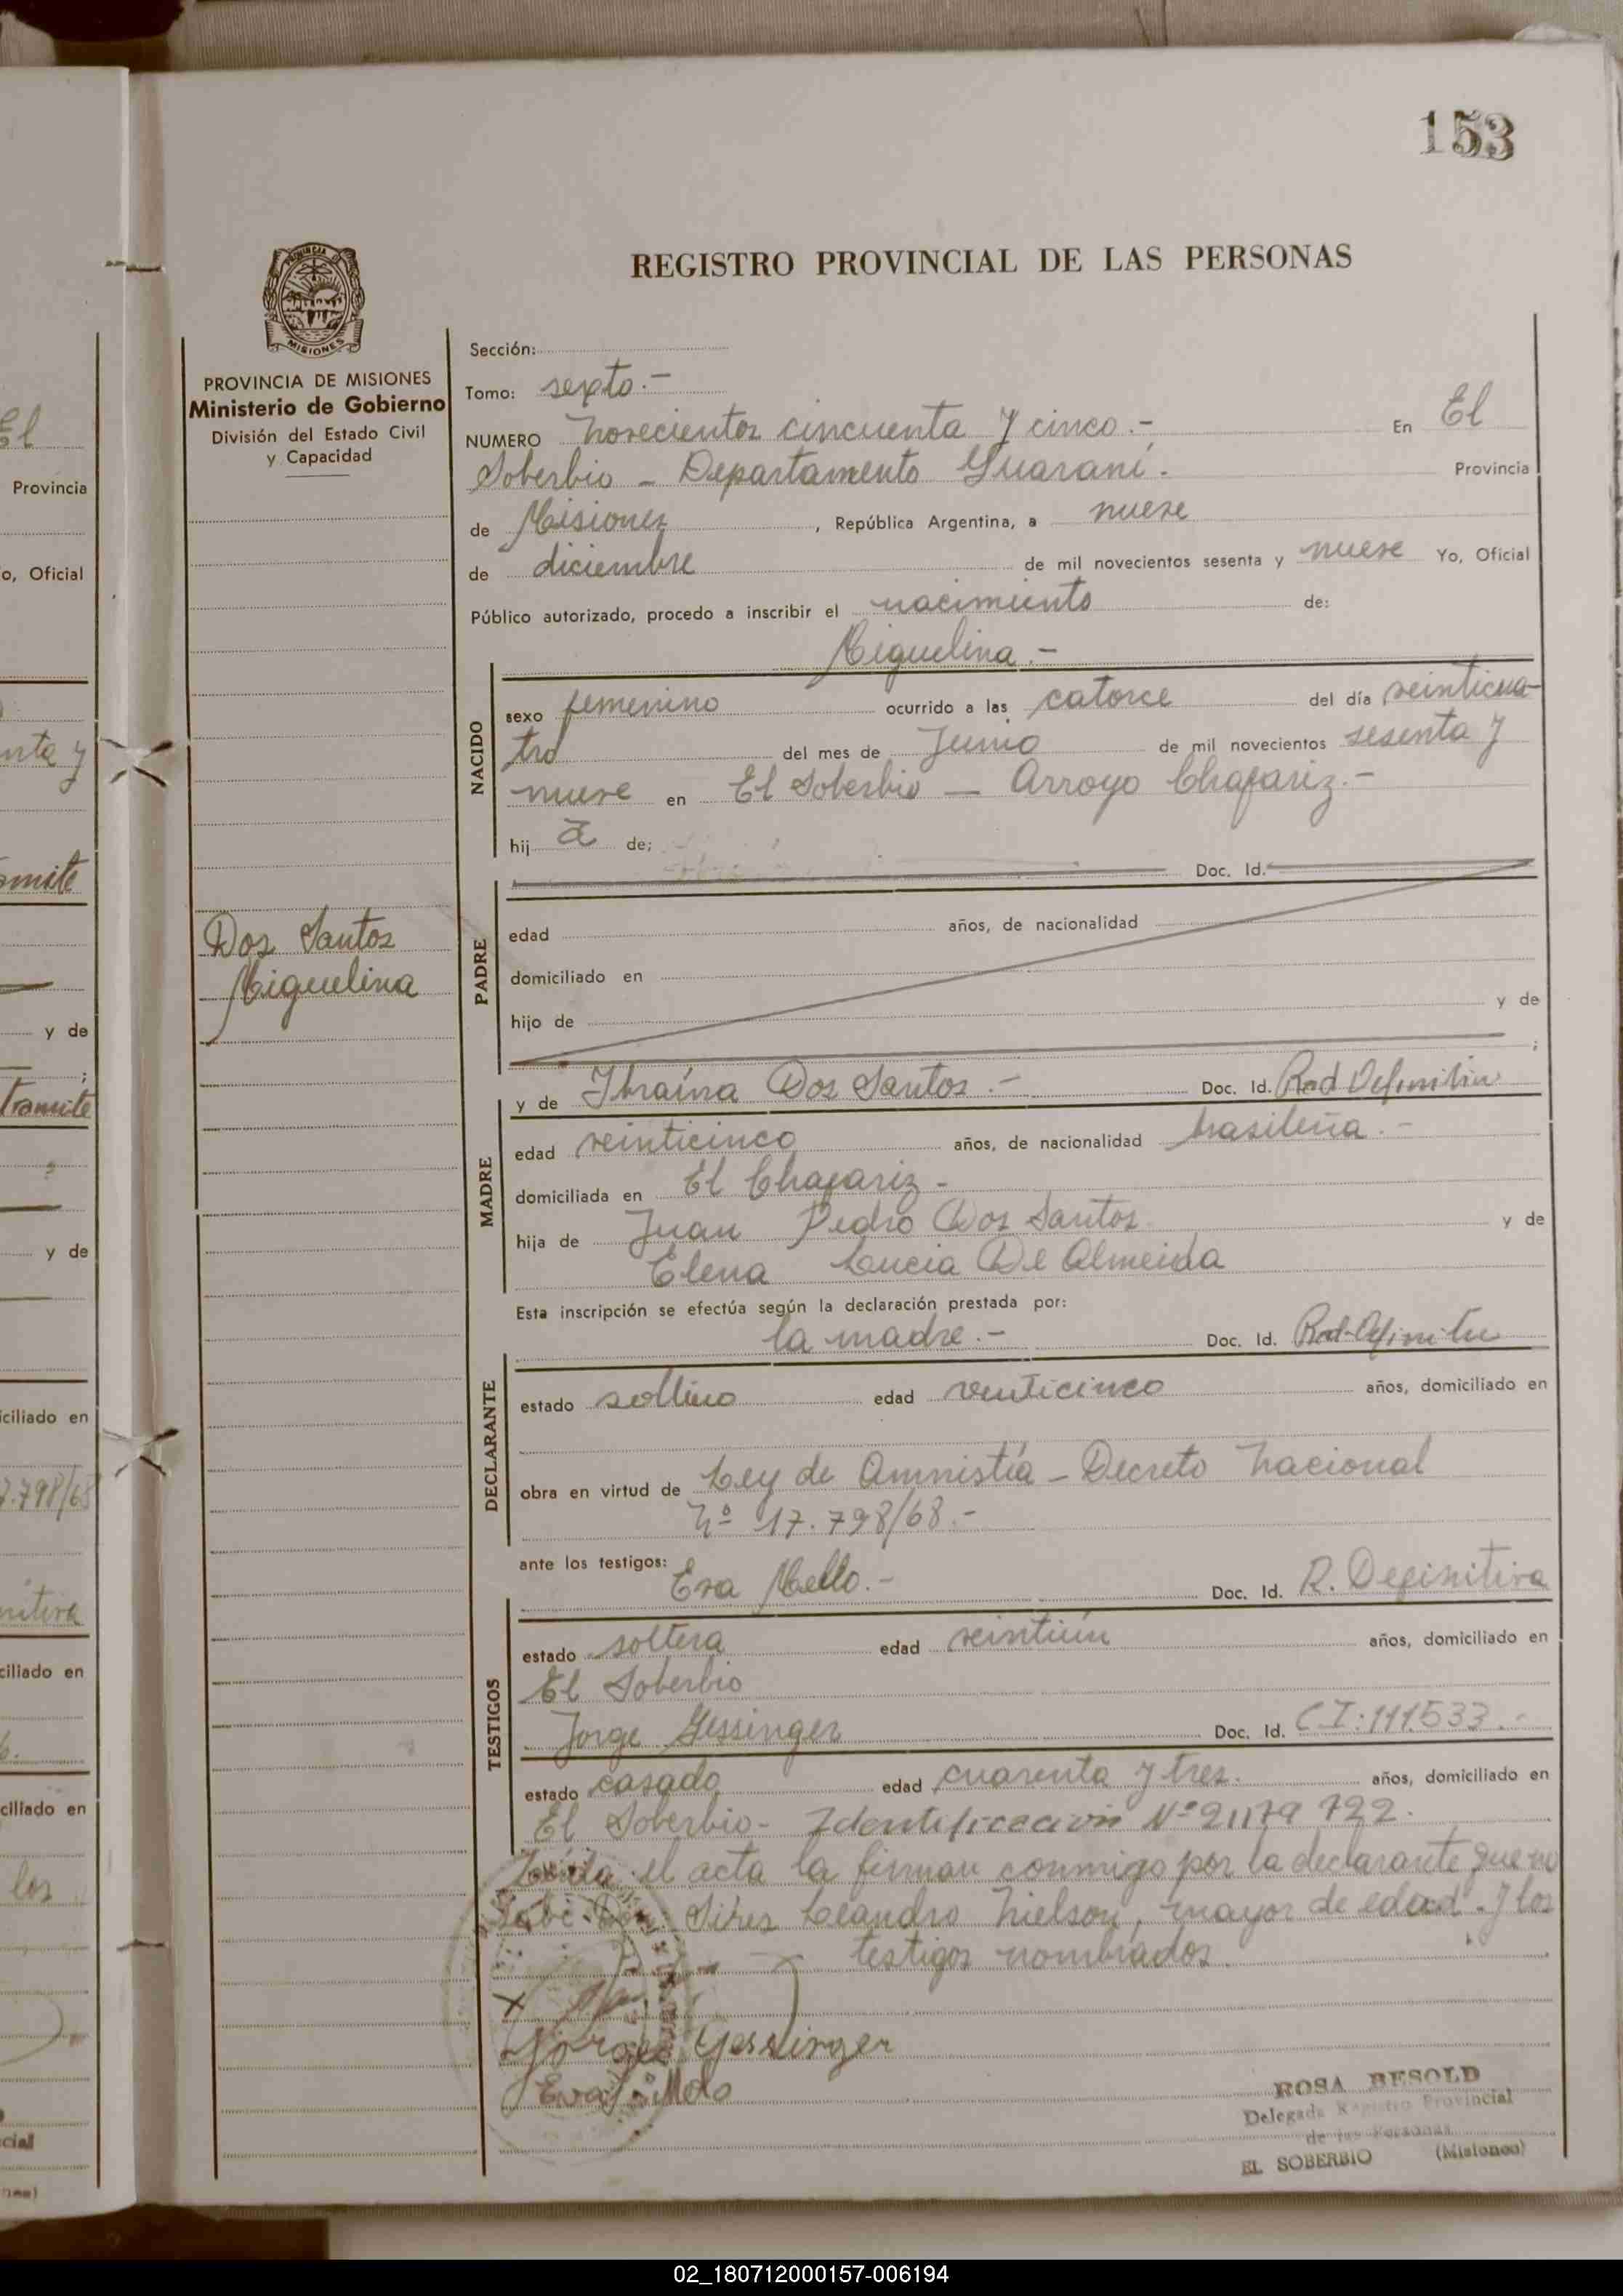 153
REGISTRO PROVINCIAL DE LAS PERSONAS
PROVINCIA DE MISIONES
Ministerio de Gobierno
División del Estado Civil
y Capacidad
Dos Santos
Miguelina
Sección:
Tomo: sexto.-
NUMERO Novecientos cincuenta y cinco.- En El
Soberbio - Departamento Guaraní. Provincia
de Misiones, República Argentina, a nueve
de diciembre de mil novecientos sesenta y nueve Yo, Oficial
Público autorizado, procedo a inscribir el nacimiento de:
Miguelina.-
NACIDO
sexo femenino ocurrido a las catorce del día veinticua-
tro del mes de Junio de mil novecientos sesenta y
nueve en El Soberbio - Arroyo Chafariz.-
hij a de;
Doc. Id.
PADRE
edad años, de nacionalidad
domiciliado en
hijo de y de
;
MADRE
y de Ibraína Dos Santos.- Doc. Id. Rad Definitiva
edad veinticinco años, de nacionalidad brasileña.-
domiciliada en El Chafariz-
hija de Juan Pedro Dos Santos y de
Elena Lucia De Almeida
Esta inscripción se efectúa según la declaración prestada por:
la madre.- Doc. Id. Rad-Definitiva
DECLARANTE
estado soltera edad veinticinco años, domiciliado en
obra en virtud de Ley de Amnistía - Decreto Nacional
Nº 17.798/68.-
ante los testigos:
Eva Mello.- Doc. Id. R. Definitiva
TESTIGOS
estado soltera edad veintiún años, domiciliado en
El Soberbio
Jorge Gessinger Doc. Id. C I: 111.533.-
estado casado edad cuarenta y tres. años, domiciliado en
El Soberbio- Identificación Nº 21179 722.
Leída el acta la firman conmigo por la declarante que no
sabe Don Sires Leandro Nielson, mayor de edad. y los
testigos nombrados.
X
Jorge Gessinger
Eva Mello
ROSA RESOLD
Delegada Registro Provincial
de las Personas
EL SOBERBIO (Misiones)
El
Provincia
o, Oficial
nta y
y de
Tramite
y de
iciliado en
7.798/68
nitiva
ciliado en
ciliado en
los
cial
02_180712000157-006194